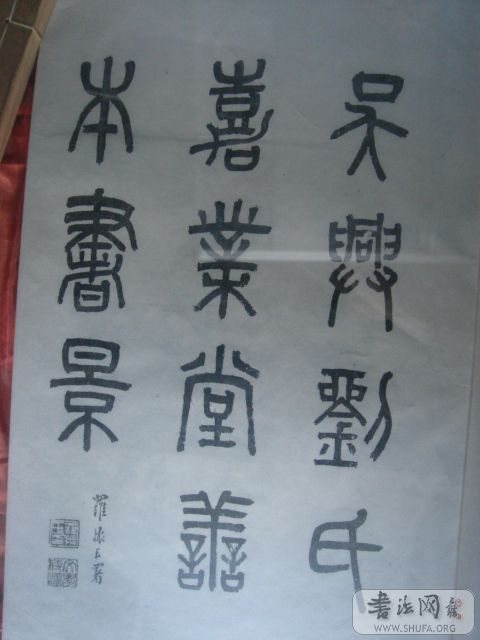 吳興劉氏
嘉業堂善
本書景
羅振玉署
書法网
WWW.SHUFA.ORG